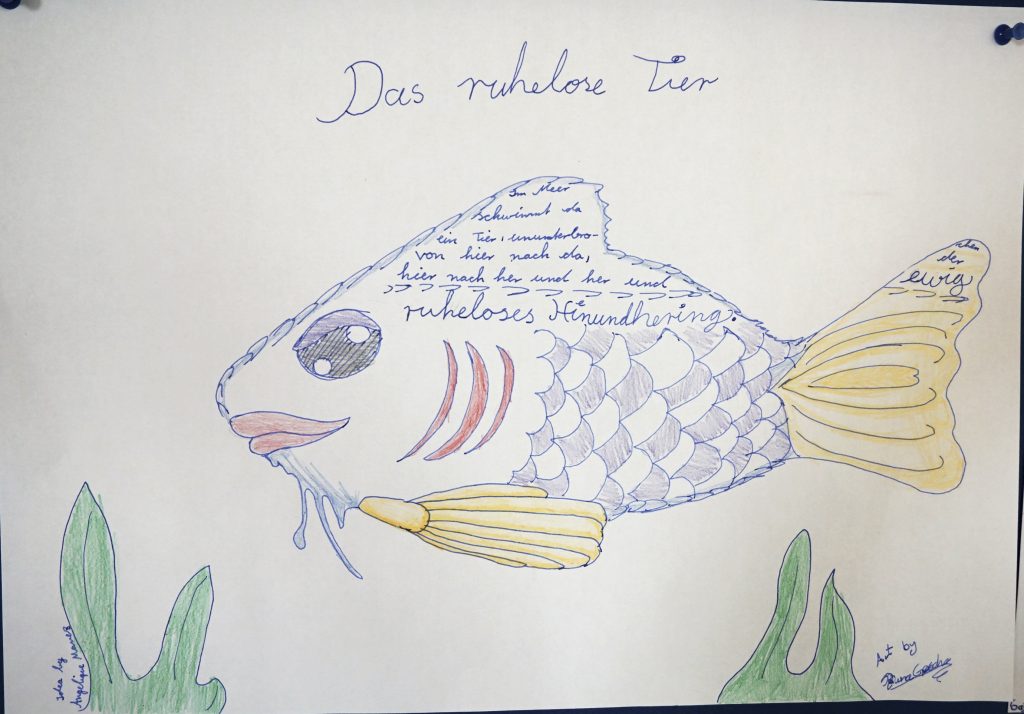 Das ruhelose Tier
Im Meer
schwimmt da
ein Tier, ununterbro-
chen
von hier nach da,
der
hier nach her und her und
ewig
ruheloses Hinundhering.
Idea by
Angelique
Art by